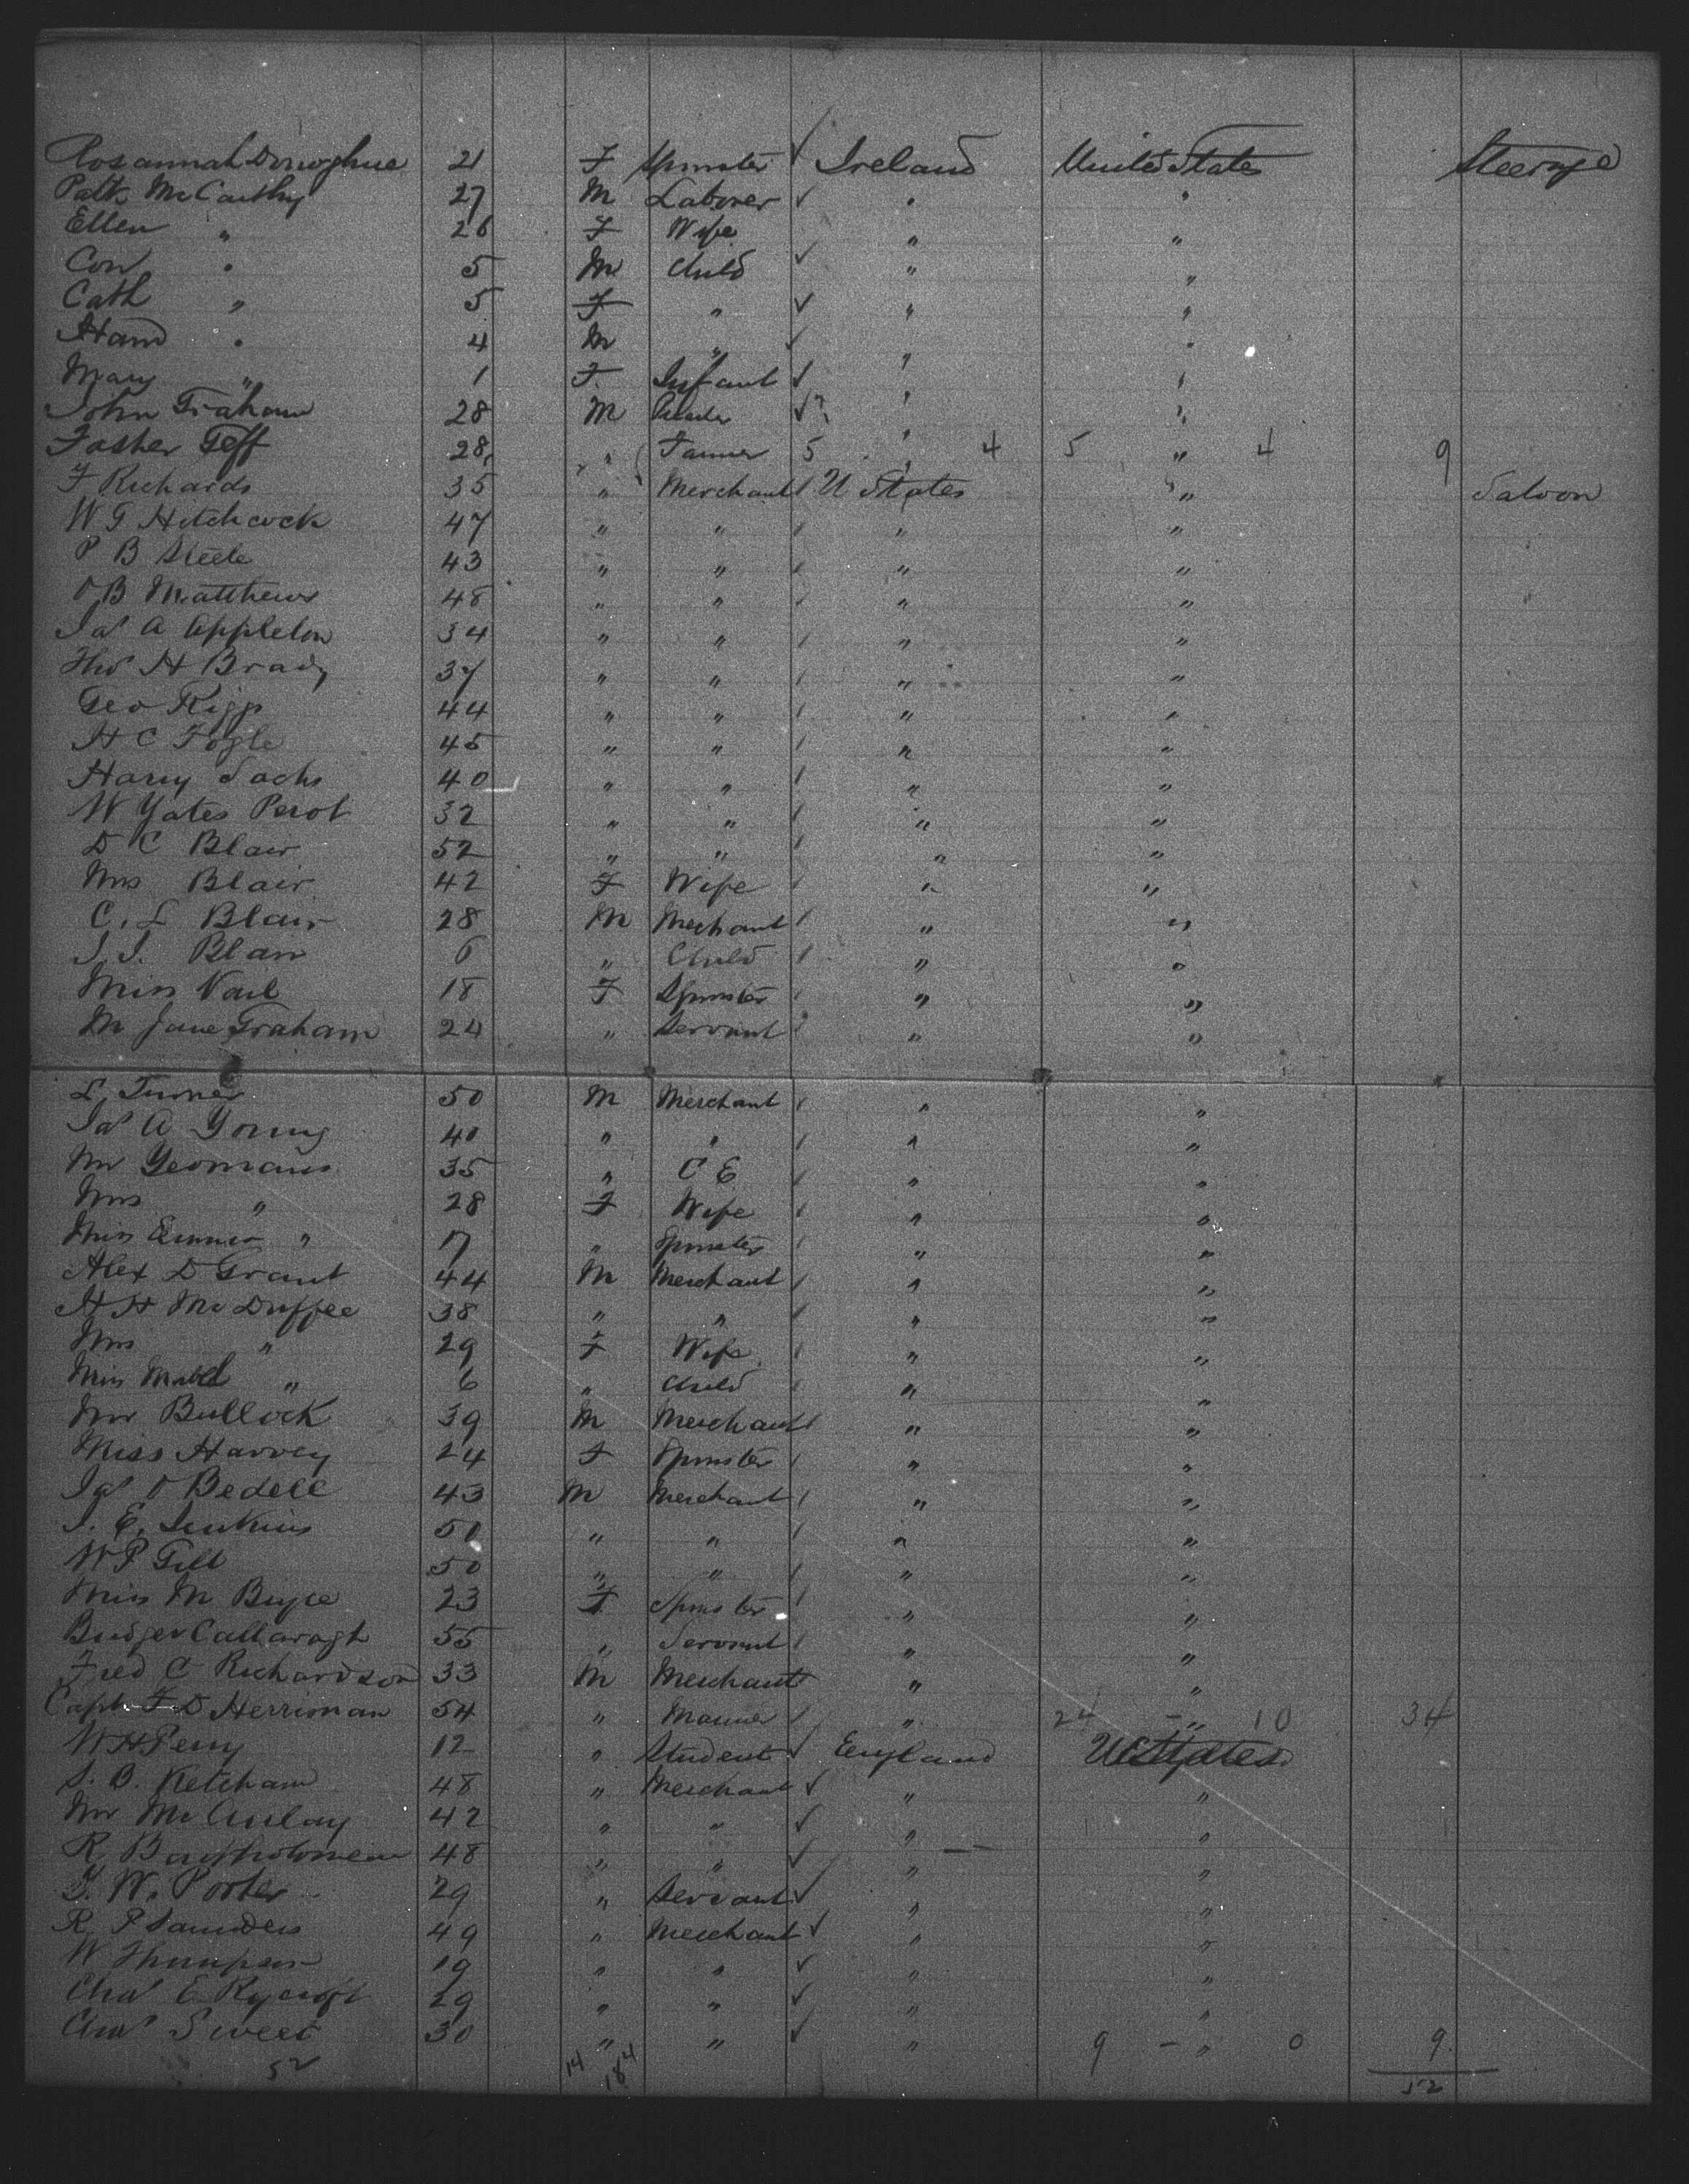 Rosannah Donoghue 21 F Spinster ✓ Ireland United States Steerage
Patk McCarthy 27 M Laborer ✓ " "
Ellen " 26 F Wife " "
Con " 5 M Child ✓ " "
Cath " 5 F " ✓ " "
" 4 M " ✓ " "
Mary " 1 F Infant ✓ " "
John Graham 28 M ✓ " "
28 " 5 " 4 5 " 4 9
F Richards 35 " Merchant U States " Saloon
W G Hitchcock 47 " " " "
P B Steele 43 " " " "
O B Matthews 48 " " " "
Jas A Appleton 34 " " " "
Thos H Brady 37 " " " "
Geo 44 " " " "
H C Fogle 45 " " " "
Harry Sachs 40 " " " "
W Yates Perot 32 " " " "
D C Blair 52 " " " "
Mrs Blair 42 F Wife " "
C. L Blair 28 M Merchant " "
J. J. Blair 6 " Child " "
Miss Vail 18 F Spinster " "
M Jane Graham 24 " Servant " "
L. Turner 50 M Merchant " "
Jas A Young 40 " " " "
Mr Yeomans 35 " C E " "
Mrs " 28 F Wife " "
Miss " 17 " Spinster " "
Alex D Grant 44 M Merchant " "
H H McDuffee 38 " " " "
Mrs " 29 F Wife " "
Miss Mabel " 6 " Child " "
Mr Bullock 39 M Merchant " "
Miss Harvey 24 F Spinster " "
Jas O Bedell 43 M Merchant " "
J. E. Jenkins 50 " " " "
W P Gill 50 " " " "
Miss M Bryce 23 F Spinster " "
55 " Servant " "
Fred C Richardson 33 M Merchant " "
Capt F D Herriman 54 " Mariner " 24 - " 10 34
W H Perry 12 " Student ✓ England U States
S. B. Ketcham 48 " Merchant ✓ " "
Mr McAulay 42 " " ✓ " "
R Bartholomew 48 " " ✓ " "
G. W. Porter 29 " Servant ✓ " "
R P Saunders 49 " Merchant ✓ " "
W Thompson 19 " " ✓ " "
Chas E Rycroft 29 " " ✓ " "
Chas Sweet 30 " " ✓ " 9 - " 0 9
52 14 184 52